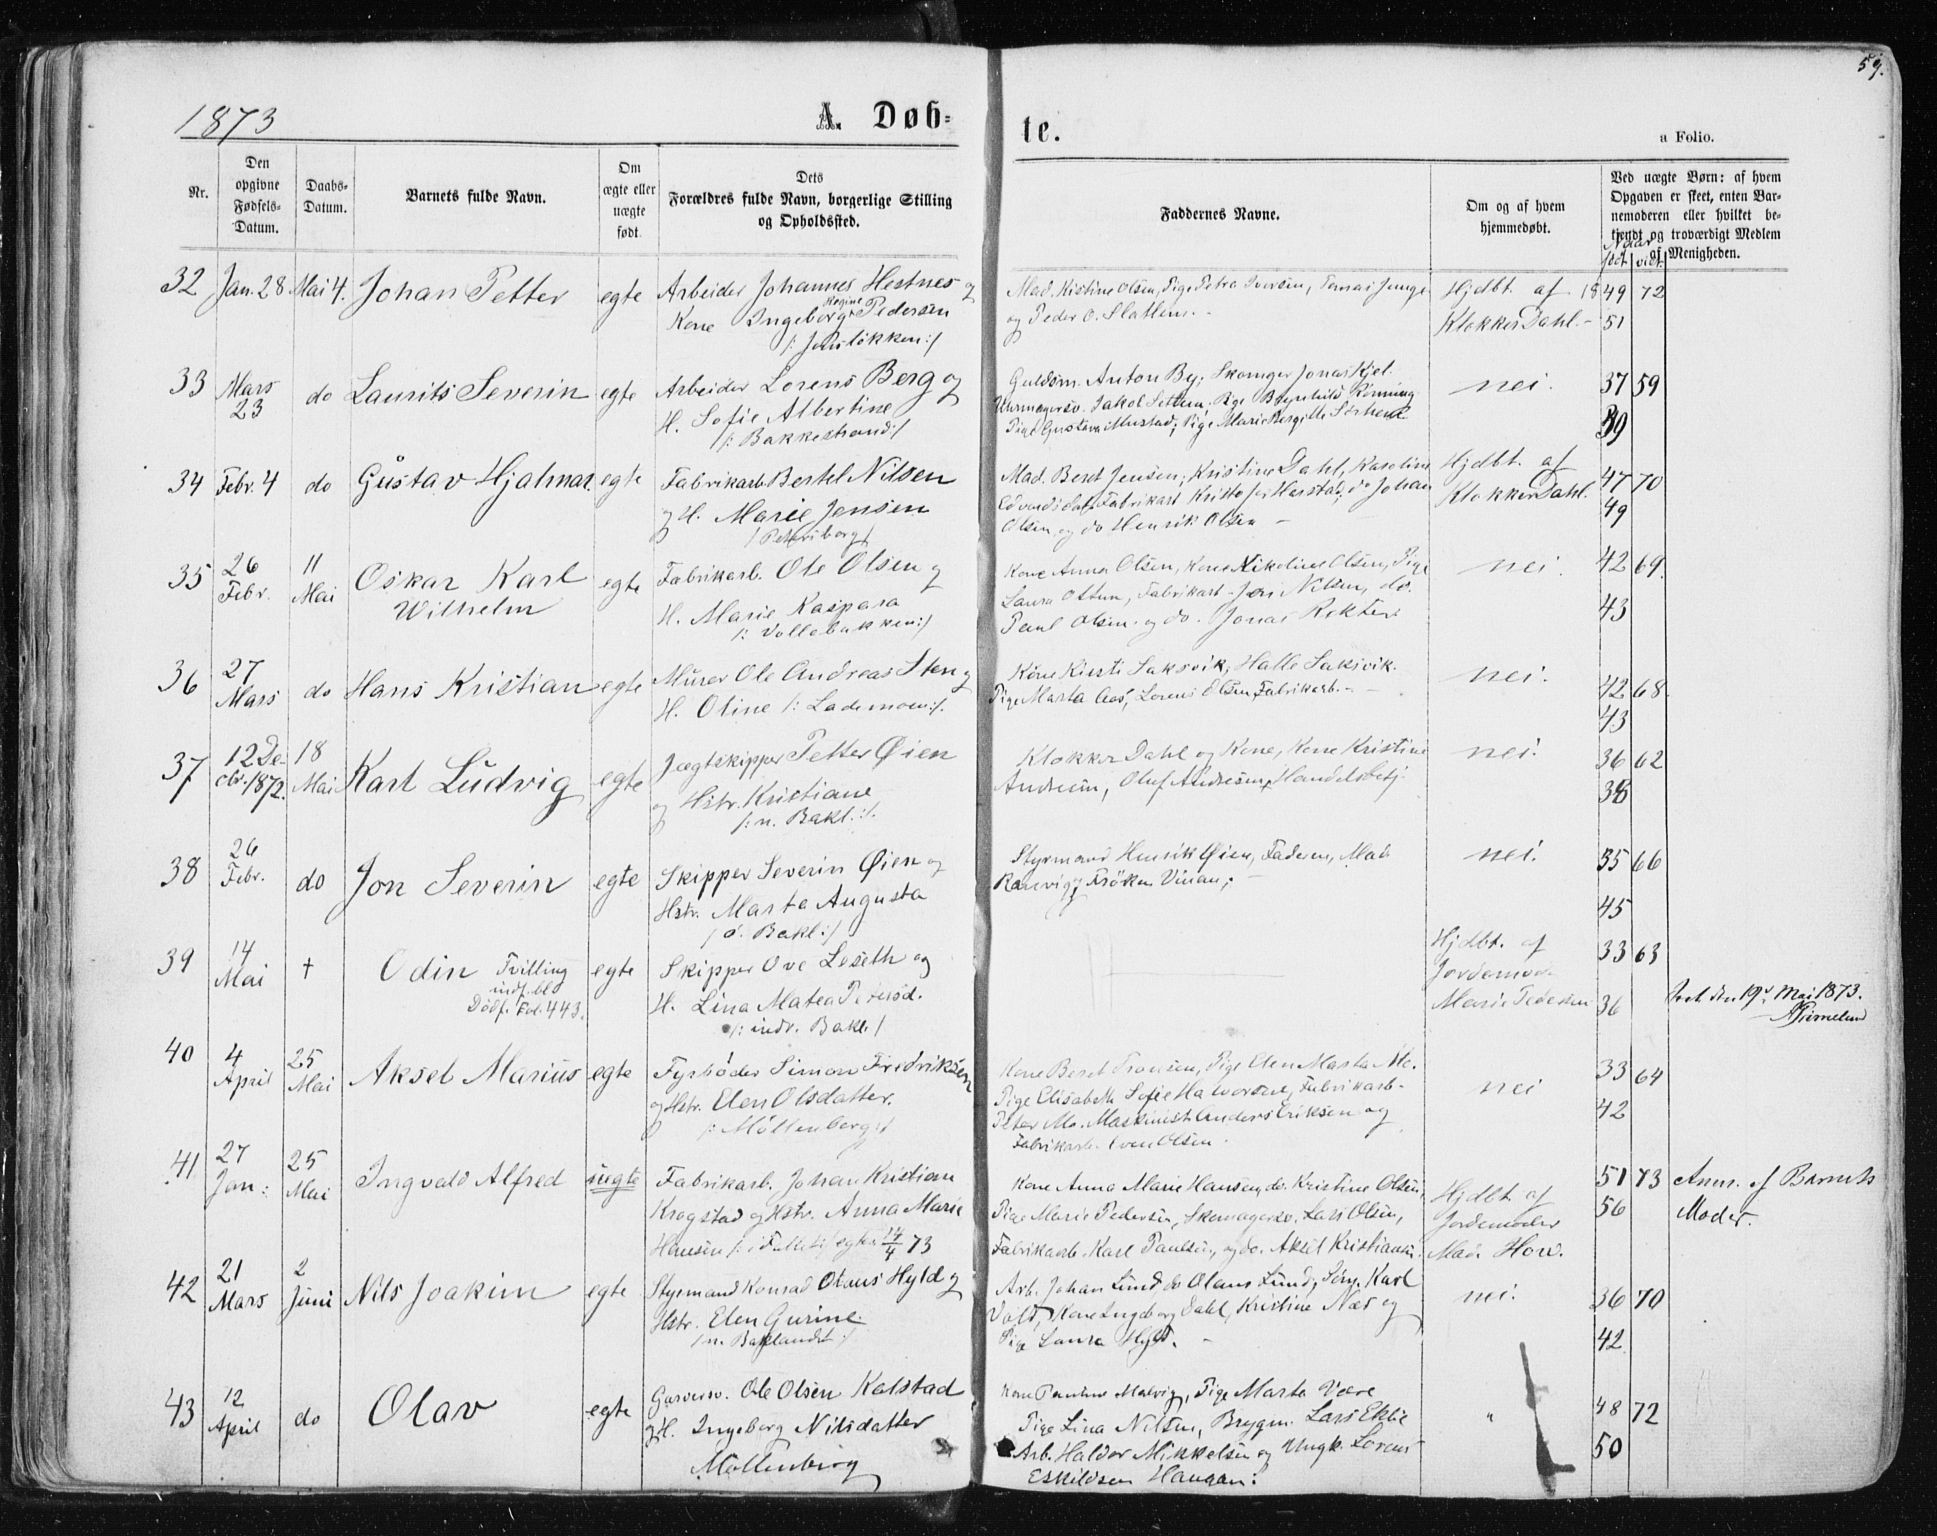 59.
1873
A. Døb-
te.
a Folio.
Nr.
Den opgivne Fødsels-Datum.
Daabs-Datum.
Barnets fulde Navn.
Om ægte eller uægte født.
Dets Forældres fulde Navn, borgerlige Stilling og Opholdssted.
Faddernes Navne.
Om og af hvem hjemmedøbt.
Ved uægte Børn: af hvem Opgaven er skeet, enten Barnemoderen eller hvilket betjendt og troværdigt Medlem af Menigheden.
Naar
født vidt
32 Jan. 28 Mai 4. Johan Petter egte Arbeider Johannes Hestnes og
Kone Ingeborg Regine Pedersen
Mad. Kistine Olsen, Pige Petra Iversen, Tomas Junge
og Peder O. Slatlem.
Hjdbt. af
Klokker Dahl.
1849 72
51
33 Mars 23 do Laurits Severin egte Arbeider Lorens Berg og
H. Sofie Albertine
/: Bakkestrand :/
Guldsm. Anton By; Skomager Jonas Kjel.
Pige Gustava Mustad; Pige Marie
nei.
37 59
39
34 Febr. 4 do Gustav Hjalmar. egte Fabrikarb. Bertel Nilsen
og H. Marie Jensen
/ Petersborg /
Mad. Beret Jensen; Kristine Dahl, Karoline
Fabrikarb. Kristofer Harstad; do Johan
Olsen og do Henrik Olsen
Hjdbt. af
Klokker Dahl.
47 70
49
35 26 Febr. 11 Mai Oskar Karl
Wilhelm
egte Fabrikarb. Ole Olsen og
H. Marie Kaspara
/: Vollabakken :/
Kone Anna Olsen, Kone Nikoline Olsen, Pige
Laura Olsen, Fabrikarb. Nilsen, do.
Paul Olsen og do. Jonas
nei.
42 69.
43
36 27 Mars do Hans Kristian egte Murer Ole Andreas Sten og
H. Oline /: Lademoen :/.
Kone Kirsti Saksvik; Halle Saksvik.
Pige Marta Aas, Lorens Olsen, Fabrikarb.
nei.
42 68
43
37 12 Decbr. 1872. 18 Mai Karl Ludvig egte Jægtskipper Petter Øien
og Hstr. Kristiane
/: n. Bakl. :/.
Klokker Dahl og Kone, Kone Kristine
Andresen, Oluf Andresen, Handelsbetj.
nei.
36 62
38
38 26 Febr. do Jon Severin egte Skipper Severin Øien og
Hstr. Marta Augusta
/ ø. Bakl :/
Styrmand Henrik Øien, Faderen, Mad.
Frøken
nei.
35 66
45
39 14 Mai † Odin Tvilling
indf. bl.
Dødf. Fol. 443.
egte Skipper Ove Leseth og
H. Lina Matea Petersd.
/: indr. Bakl. /
Hjdbt. af
Jordemoder
Marie Pedersen
33 63
36
19de Mai 1873.
40 4 April 25 Mai Aksel Marius egte Fyrbøder Simon Fredriksen
og Hstr. Elen Olsdatter.
/: Møllenberg :/
Kone Beret Tronsen, Pige Elen Marta Mo.
Pige Elisabeth Sofie Halvorsen, Fabrikarb.
Peter Mo. Maskinist Anders Eriksen og
Fabrikarb. Even Olsen.
nei
33 64
42
41 27 Jan: 25 Mai Ingvald Alfred uegte Fabrikarb. Johan Kristian
Krogstad og Hstr. Anna Marie
Hansen 14/4 73
Kone Anna Marie Hansen, do. Kristine Olsen,
Pige Marie Pedersen, Skomagersv. Lars Olsen,
Fabrikarb. Karl Paulsen, og do. Aksel Kristiansen.
Hjdbt. af
Jordemoder
Mad. How.
51 73
56
Anm. af Barnets
Moder.
42 21 Mars 2 Juni Nils Joakim egte Styrmand Konrad Olaus Hyld og
Hstr. Elen Gurine.
/ n. Baklandet :/
Arb. Johan Lund, do Olaus Lund, Karl
Vold, Kone Ingeborg Dahl, Kristine Næs og
Pige Laura Hyld.
nei.
36 70
42
43 12 April do Olav egte Garversv. Ole Olsen Kalstad
og H. Ingeborg Nilsdatter
Møllenberg
Kone Pauline Malvig, Pige Marta Være
Pige Lina Nilsen, Brygm. Lars Eklie
Arb. Haldor Mikkelsen og Ungk. Lorens
Eskildsen Haugan.
"
48 72
50